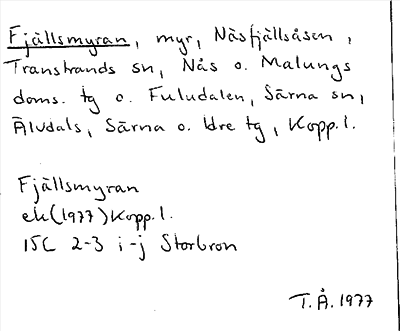 Fjällsmyran, myr, Näsfjällsåsen,
Transtrands sn, Nås o. Malungs
doms. tg o. Fuludalen, Särna sn,
Älvdals, Särna o. Idre tg, Kopp. l.
Fjällsmyran
ek (1977) Kopp. l.
15C 2-3 i-j Storbron
T. Å. 1977